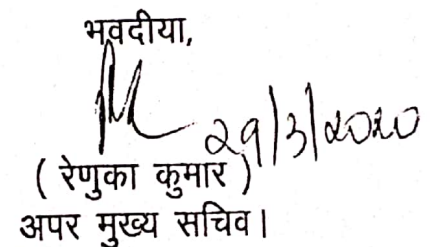 भवदीया,
29/3/2020
( रेणुका कुमार )
अपर मुख्य सचिव।